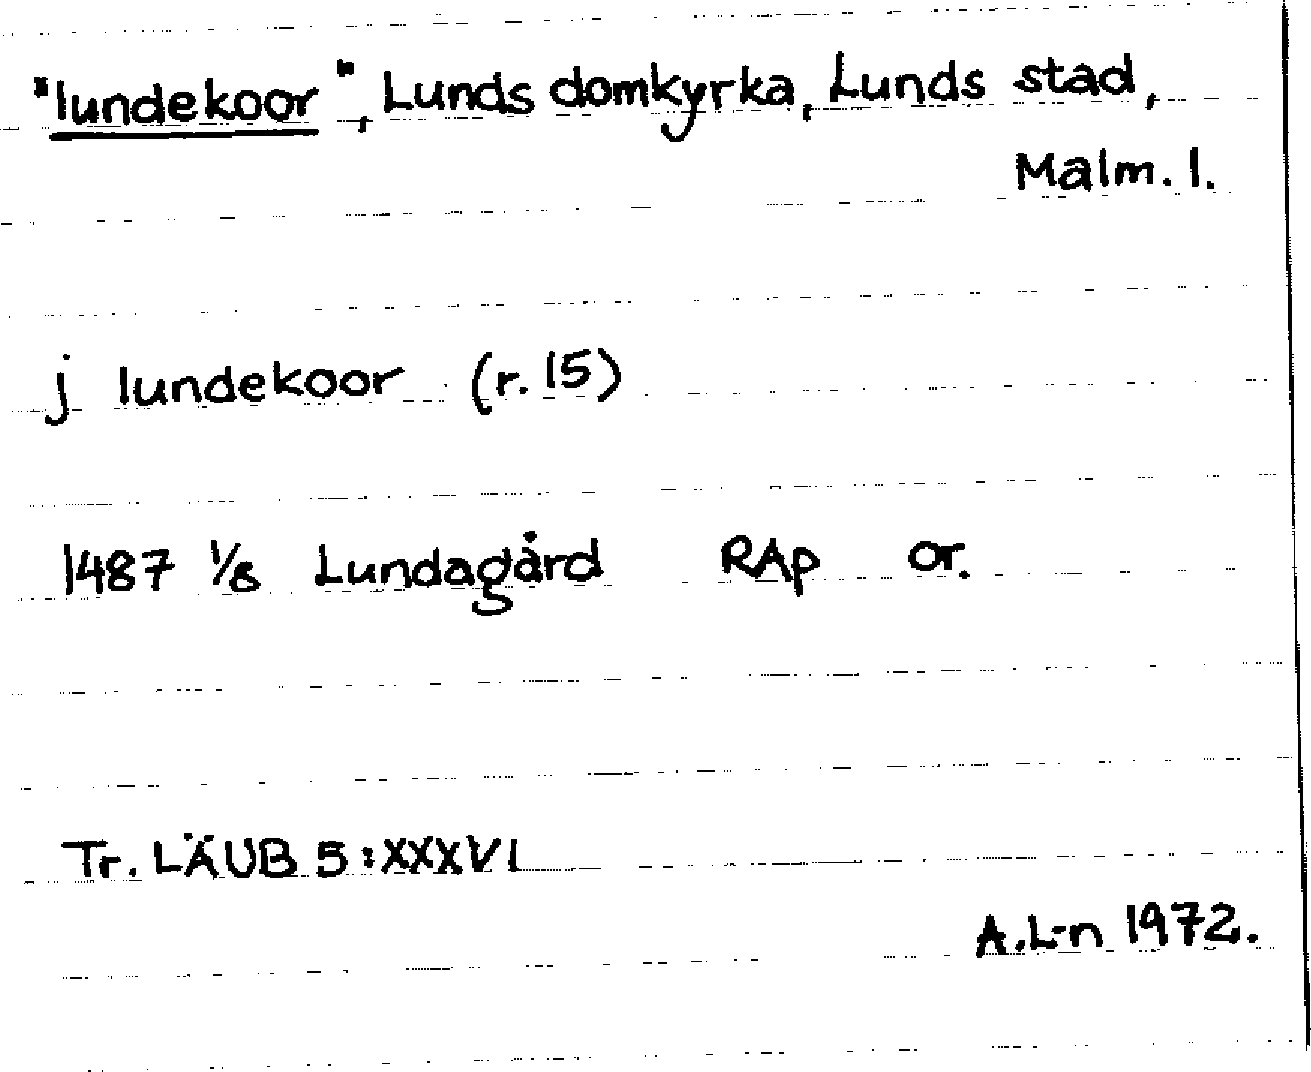 "lundekoor", Lunds domkyrka, Lunds stad,
Malm. l.
j lundekoor (r. 15)
1487 1/8 Lundagård RAp or.
Tr. LÄUB 5:XXXVI
A.L-n 1972.